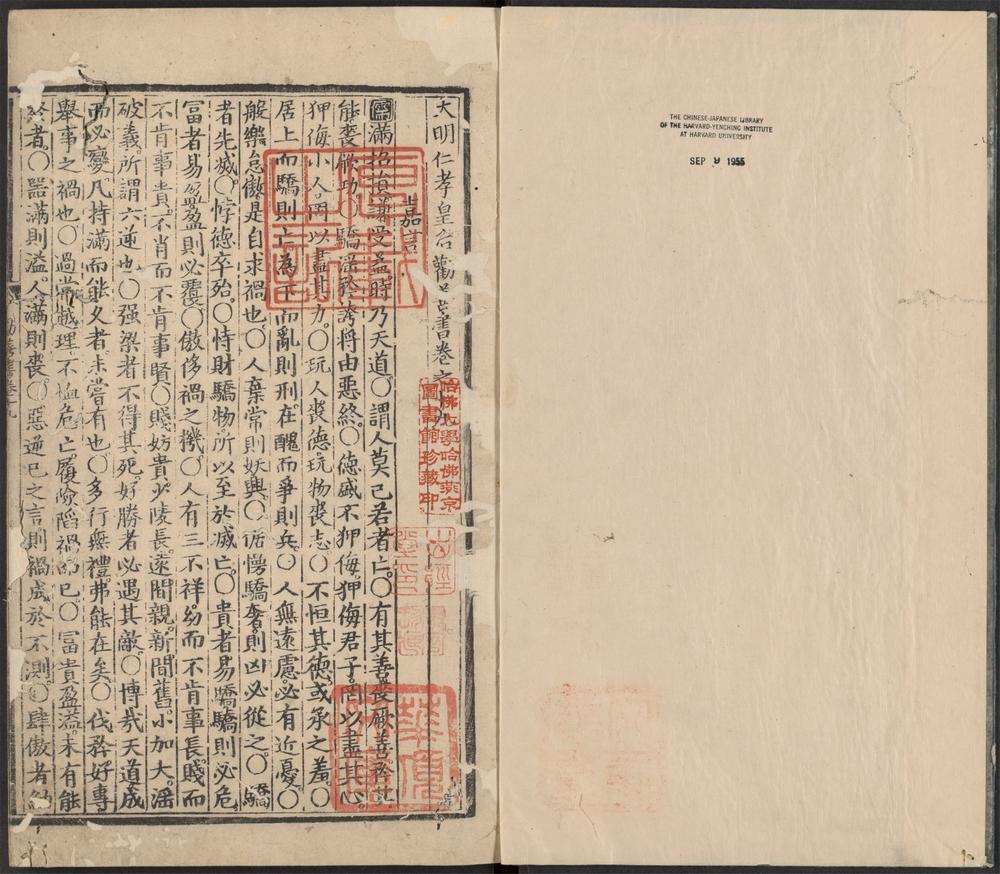 THE CHINESE-JAPANESE LIBRARY
OF THE HARVARD-YENCHING INSTITUTE
AT HARVARD UNIVERSITY
SEP 9 1955
大明仁孝皇后勸善書卷之九
嘉言
滿招損謙受益時乃天道〇謂人莫己若者亡〇有其善喪厥善矜其
能喪厥功〇驕淫矜誇將由惡終〇德盛不狎侮狎侮君子罔以盡其心
狎侮小人罔以盡其力〇玩人喪德玩物喪志〇不恒其德或承之羞〇
居上而驕則亡為下而亂則刑在醜而爭則兵〇人無遠慮必有近憂〇
般樂怠傲是自求禍也〇人棄常則妖興〇倨慢驕奢則凶必從之〇驕
者先滅〇悖德卒殆〇恃財驕物所以至於滅亡〇貴者易驕驕則必危
富者易盈盈則必覆〇傲侈禍之機〇人有三不祥幼而不肯事長賤而
不肯事貴不肖而不肯事賢〇賤妨貴少陵長遠間親新間舊小加大淫
破義所謂六逆也〇强梁者不得其死好勝者必遇其敵〇博哉天道成
而必變凡持滿而能久者未嘗有也〇多行無禮弗能在矣〇伐矜好專
舉事之禍也〇過常越理不恤危亡履險蹈禍而已〇富貴盈溢未有能
終者〇器滿則溢人滿則喪〇惡逆已之言則禍成於不測〇肆傲者納
勸善書卷十九
哈佛大學哈佛燕京
圖書館珍藏印